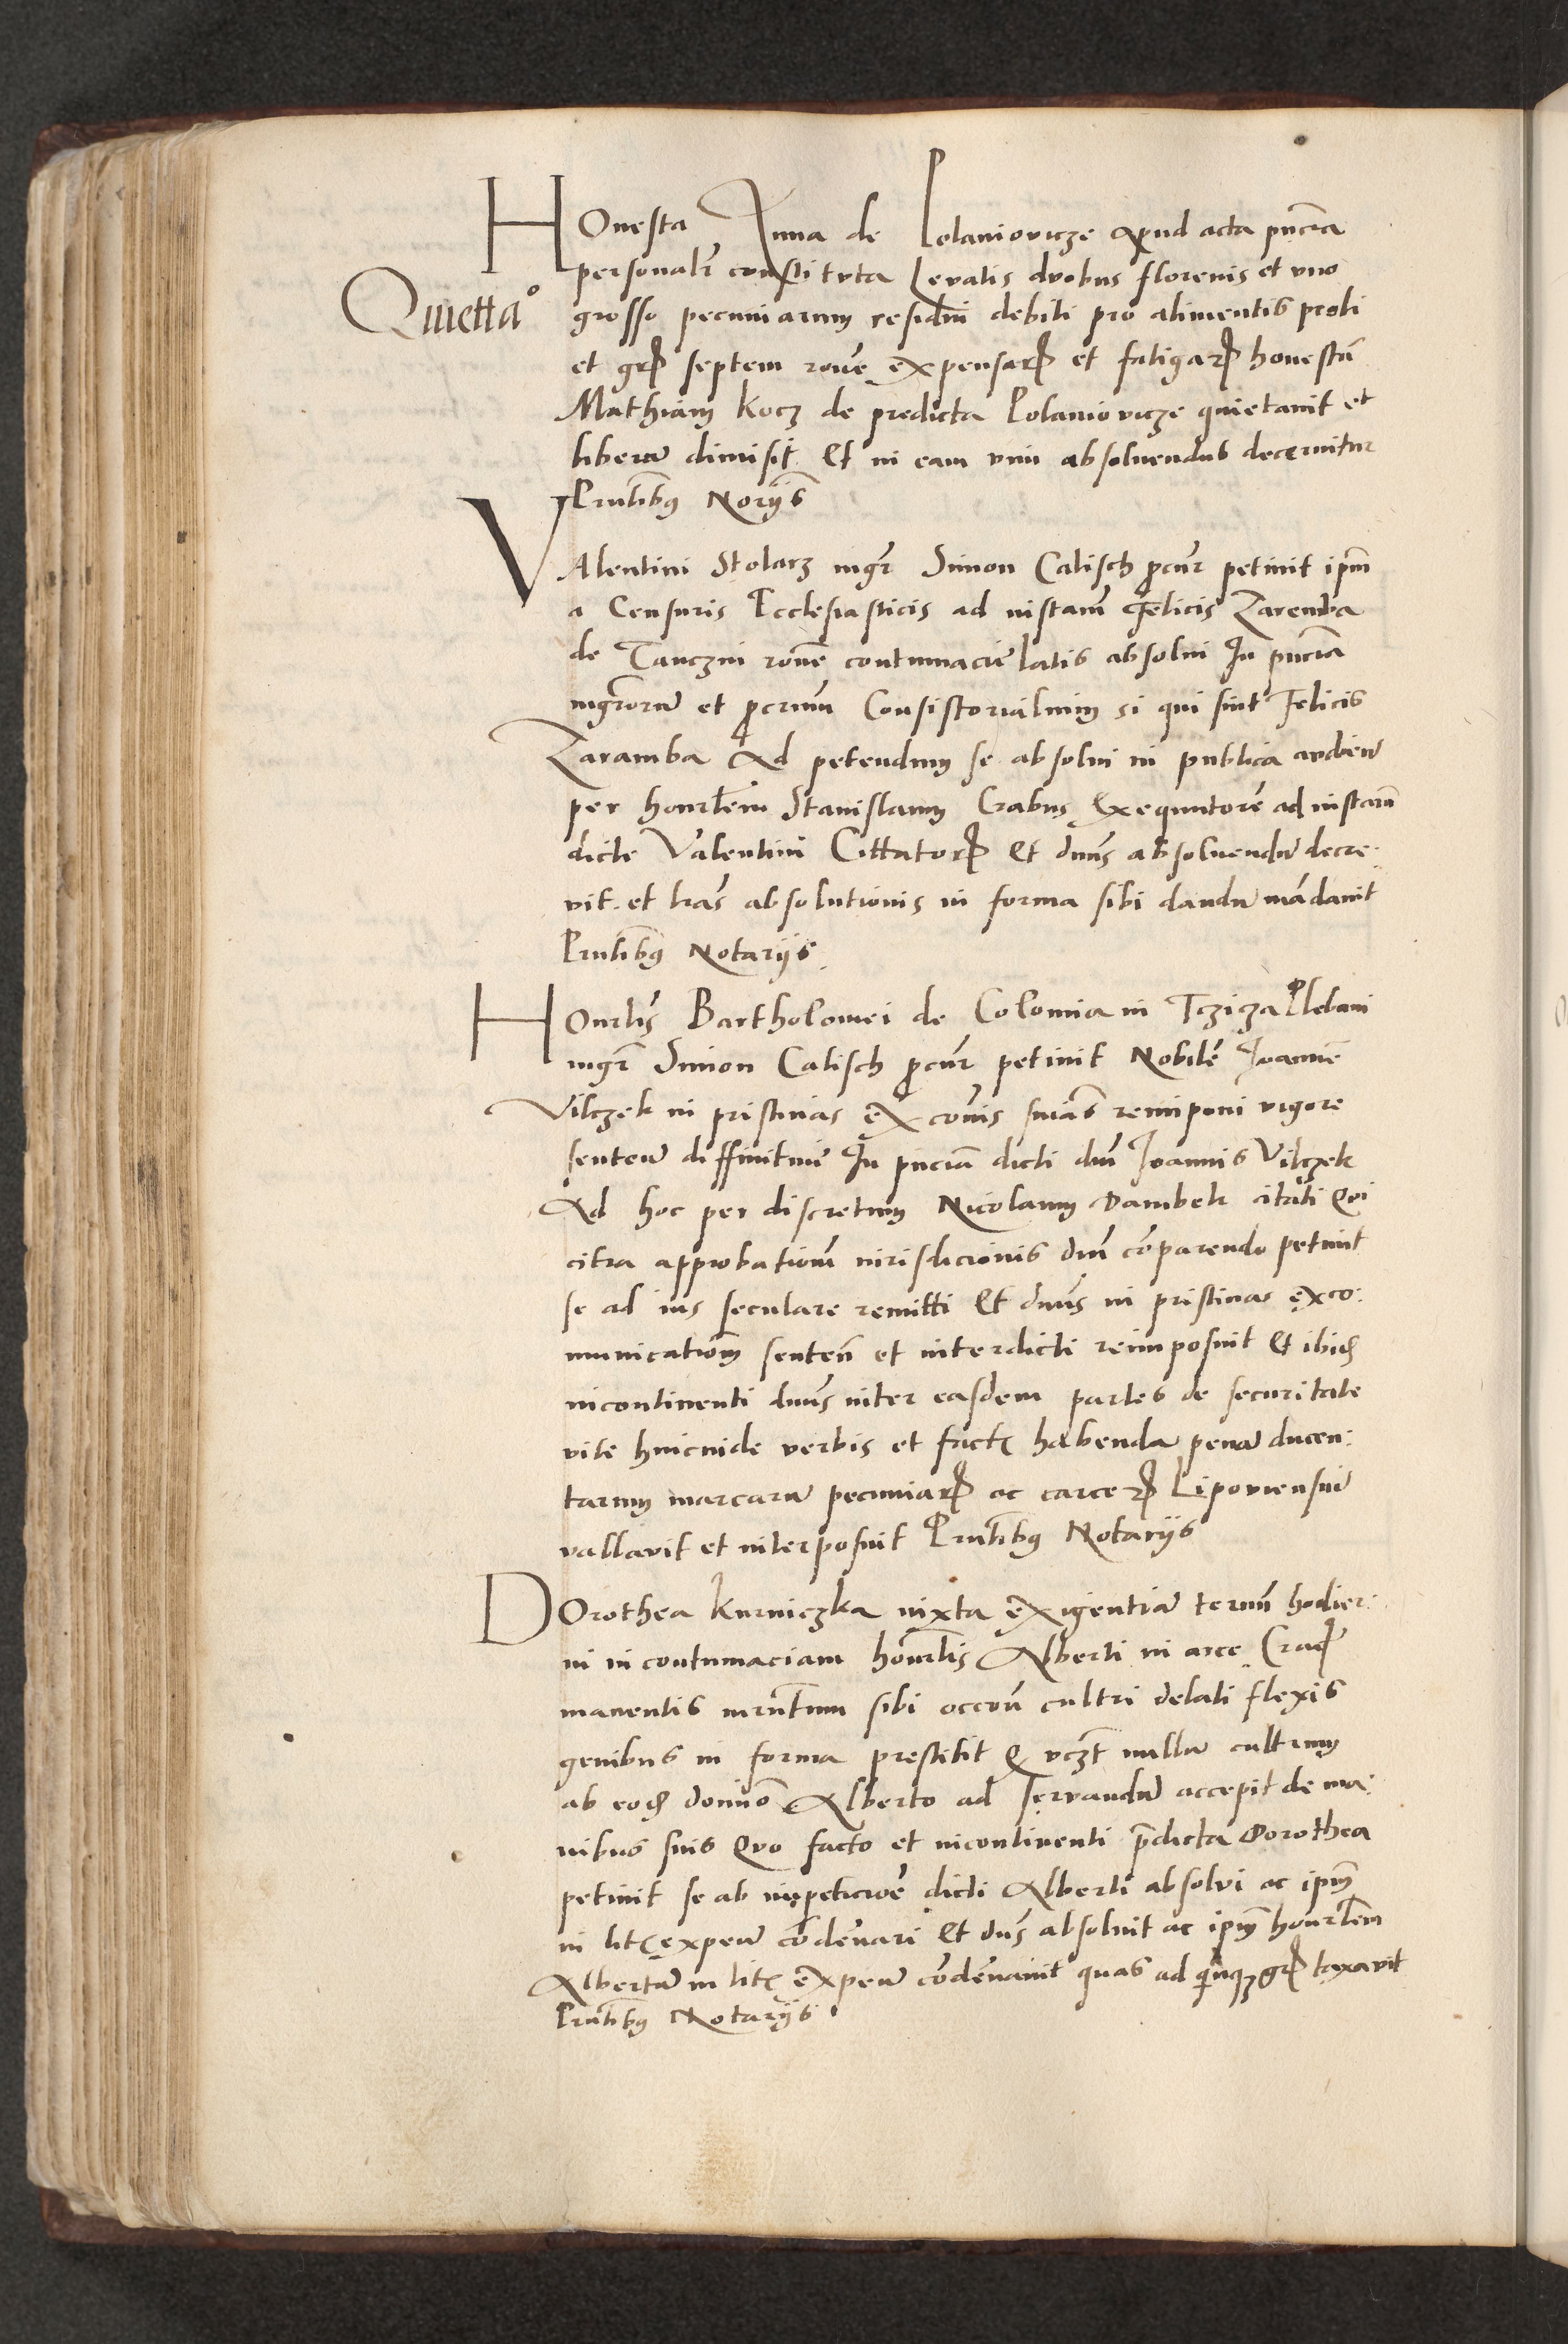 HOnesta Anna de Polaniovicze apud acta pncia
personalr constituta Levatis duobus florenis et vno
Quietta°
grosso pecuniarum residui debiti pro alimentis proli
et gr septem rone expensar et fatigar honestu
Mathiam Kocz de predicta Polaniovicze quietauit et
liberu dimisit Et in eam vim absoluendus decernitur
Pntibus Norijs
VAlentini Stolarz mgr Simon Calisch pcur petiuit ipm
a Censuris Ecclesiasticis ad instam Felicis Zaremba
de Tanczin rone contumacie latis absolui In pncia
mgroru et pcrum Consistorialium si qui sint Felicis
Zaramba Ad petendum se absolui in publica audien
per honrlem Stanislaum Crabus Exequutore ad instam
dicte Valentini Cittator Et dnus absoluendu decre:
uit et lras absolutionis in forma sibi dandu mandauit
Pntibus Notarijs
HOnrlis Bartholomei de Colomia in Tczicza Plebani
mgr Simon Calisch pcur petiuit Nobile Joanne
Vilczek in pristinas excois snias reimponi vigore
senten diffinitiue In pncia dicti dni Joannis Vilczek
Ad hoc per discretum Nicolaum Dambek citati Qui
citra approbationem iurisdicionis dni comparendo petiuit
se ad ius seculare remitti Et dnus in pristinas exco:
municationum senten et interdicti reimposuit Et ibid
incontinenti dnus inter easdem partes de securitate
vite hincinde verbis et factis habenda penam ducen:
tarum marcaru pecuniar ac carcer Lipoviensiu
vallavit et interposuit Pntibus Notarijs
DOrothea Kurniczka iuxta exigentia termi hodier:
ni in contumaciam honrlis Alberti in arce Crac
manentis iurntum sibi occon cultri delati flexis
genibus in forma prestitit Q vczt nullu cultrum
ab eod domino Alberto ad servandu accepit de ma:
nibus suis Quo facto et incontinenti pdicta Dorothea
petiuit se ab impeticioe dicti Alberti absolvi ac ipm
in litis expen condenari Et dns absoluit ac ipm honrlem
Albertu in litis expen condenauit quas ad quinqz gr taxavit
Pntibus Notarijs